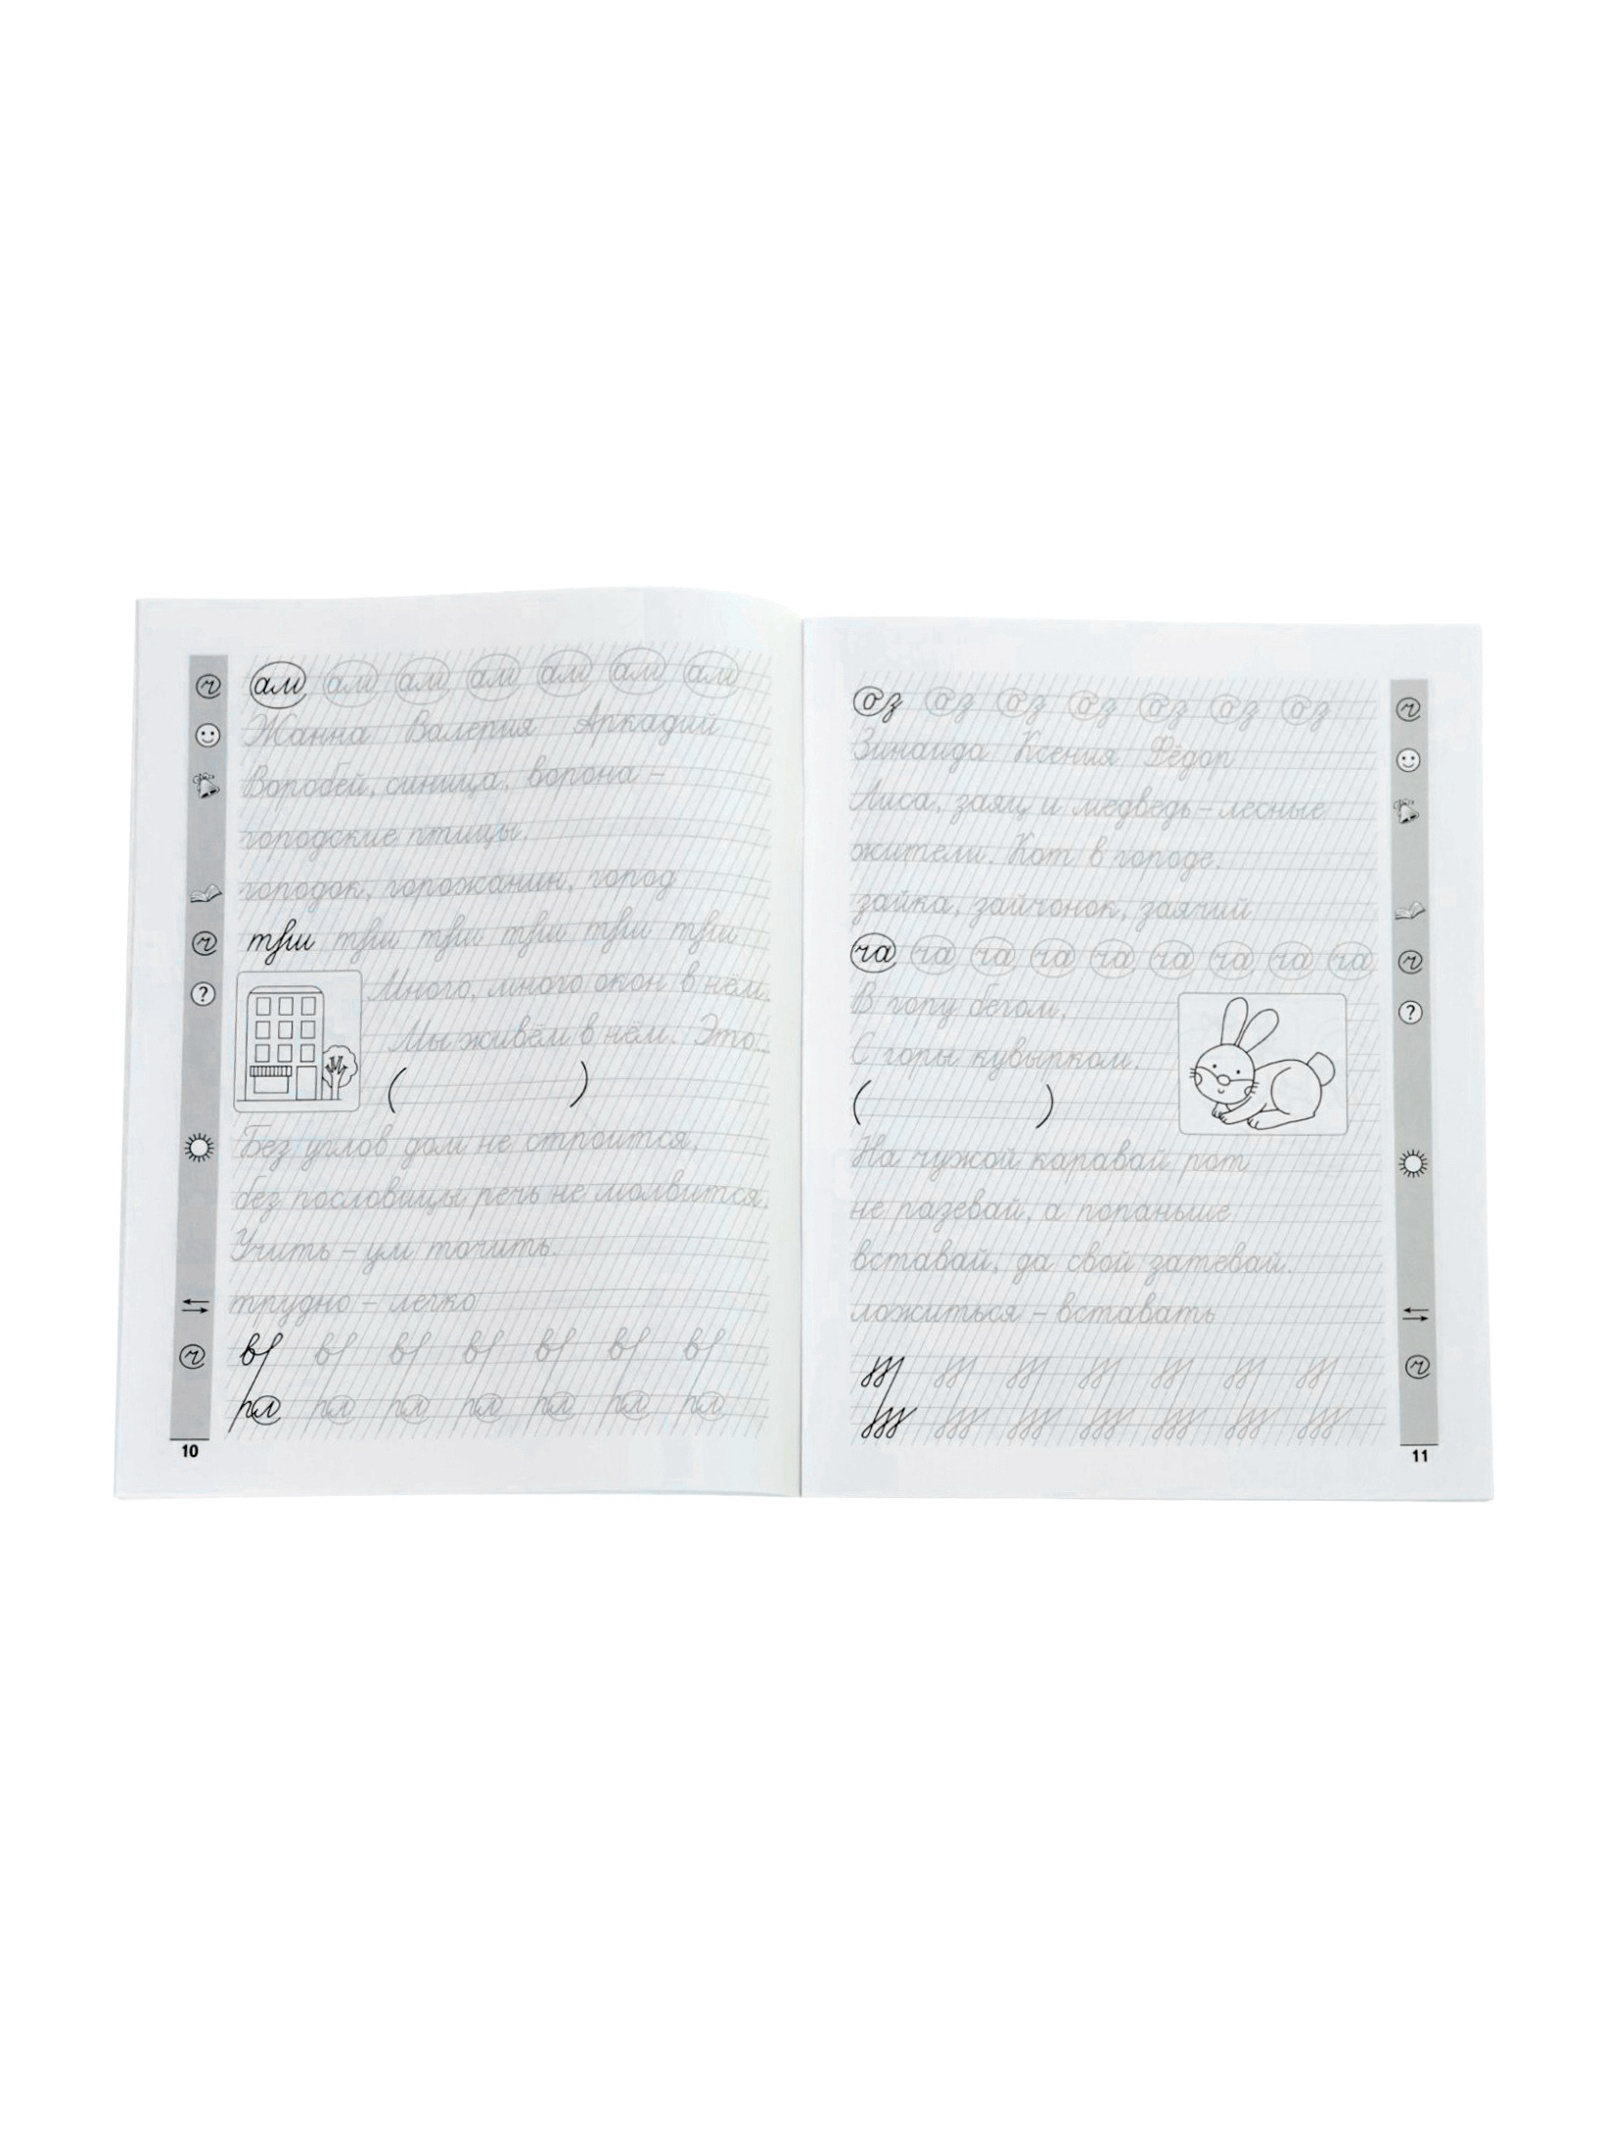 ам ам ам ам ам ам ам
Жанна Валерия Аркадий
Воробей, синица, ворона –
городские птицы.
городок, горожанин, город
Много, много окон в нём.
Мы живём в нём. Это
( )
Без углов дом не строится,
без пословицы речь не молвится.
Учить – ум точить.
трудно – легко
10
оз оз оз оз оз оз оз
Зинаида Ксения Фёдор
Лиса, заяц и медведь – лесные
жители. Кот в городе.
зайка, зайчонок, заячий
ча ча ча ча ча ча ча ча ча
В гору бегом,
С горы кувырком.
( )
На чужой каравай рот
не разевай, а пораньше
вставай, да свой затевай.
ложиться – вставать
11